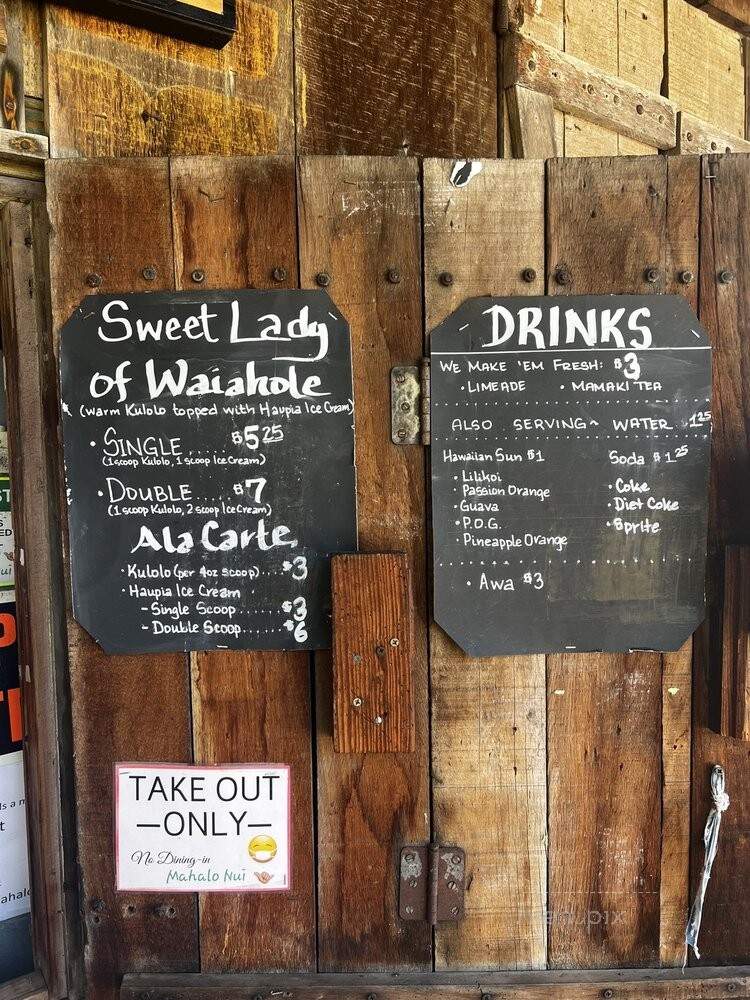 Sweet Lady
of Waiahole
(warm Kulolo topped with Haupia Ice Cream)
• SINGLE ..... $5 25
(1 scoop Kulolo, 1 scoop Ice Cream)
• DOUBLE ..... $7
(1 scoop Kulolo, 2 scoop Ice Cream)
Ala Carte
• Kulolo (per 4oz scoop) .... $3
• Haupia Ice Cream
- Single Scoop ...... $3
- Double Scoop ...... $6
DRINKS
WE MAKE 'EM FRESH: $3
• LIMEADE • MAMAKI TEA
ALSO SERVING~ WATER $1 25
Hawaiian Sun $1
• Lilikoi
• Passion Orange
• Guava
• P.O.G.
• Pineapple Orange
Soda $1 25
• Coke
• Diet Coke
• Sprite
• Awa $3
TAKE OUT
—ONLY—
No Dining-in
Mahalo Nui